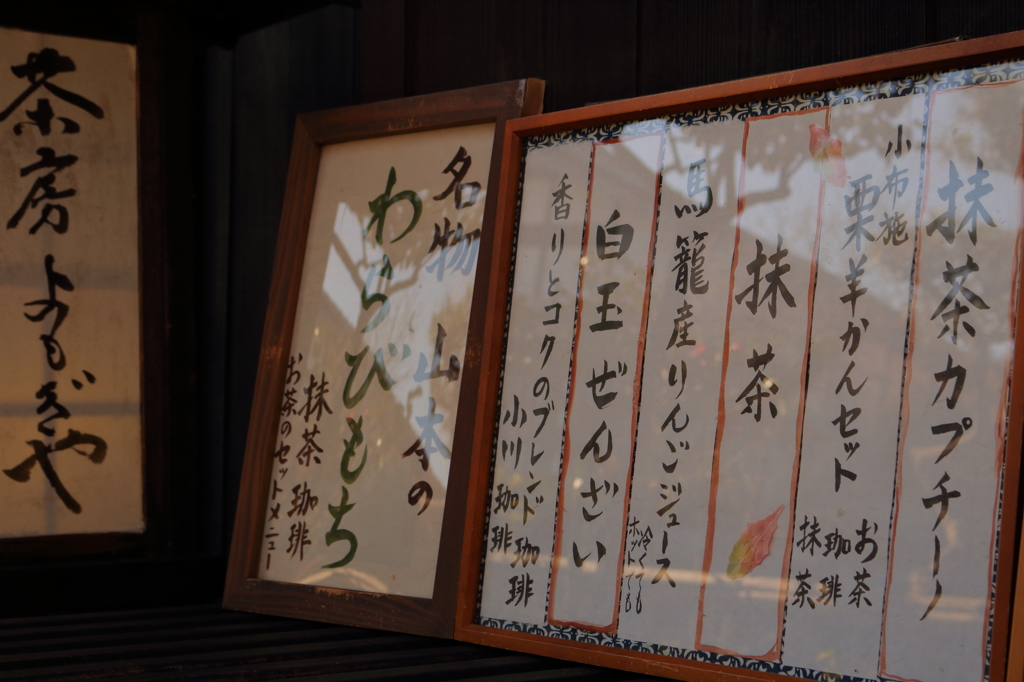 抹茶カプチーノ
小布施
栗羊かんセット
お茶
珈琲
抹茶
抹茶
馬籠産りんごジュース
冷くても
ホットでも
白玉ぜんざい
香りとコクのブレンド珈琲
小川珈琲
名物 山本今の
わらびもち
抹茶 珈琲
お茶のセットメニュー
茶房 よもぎや